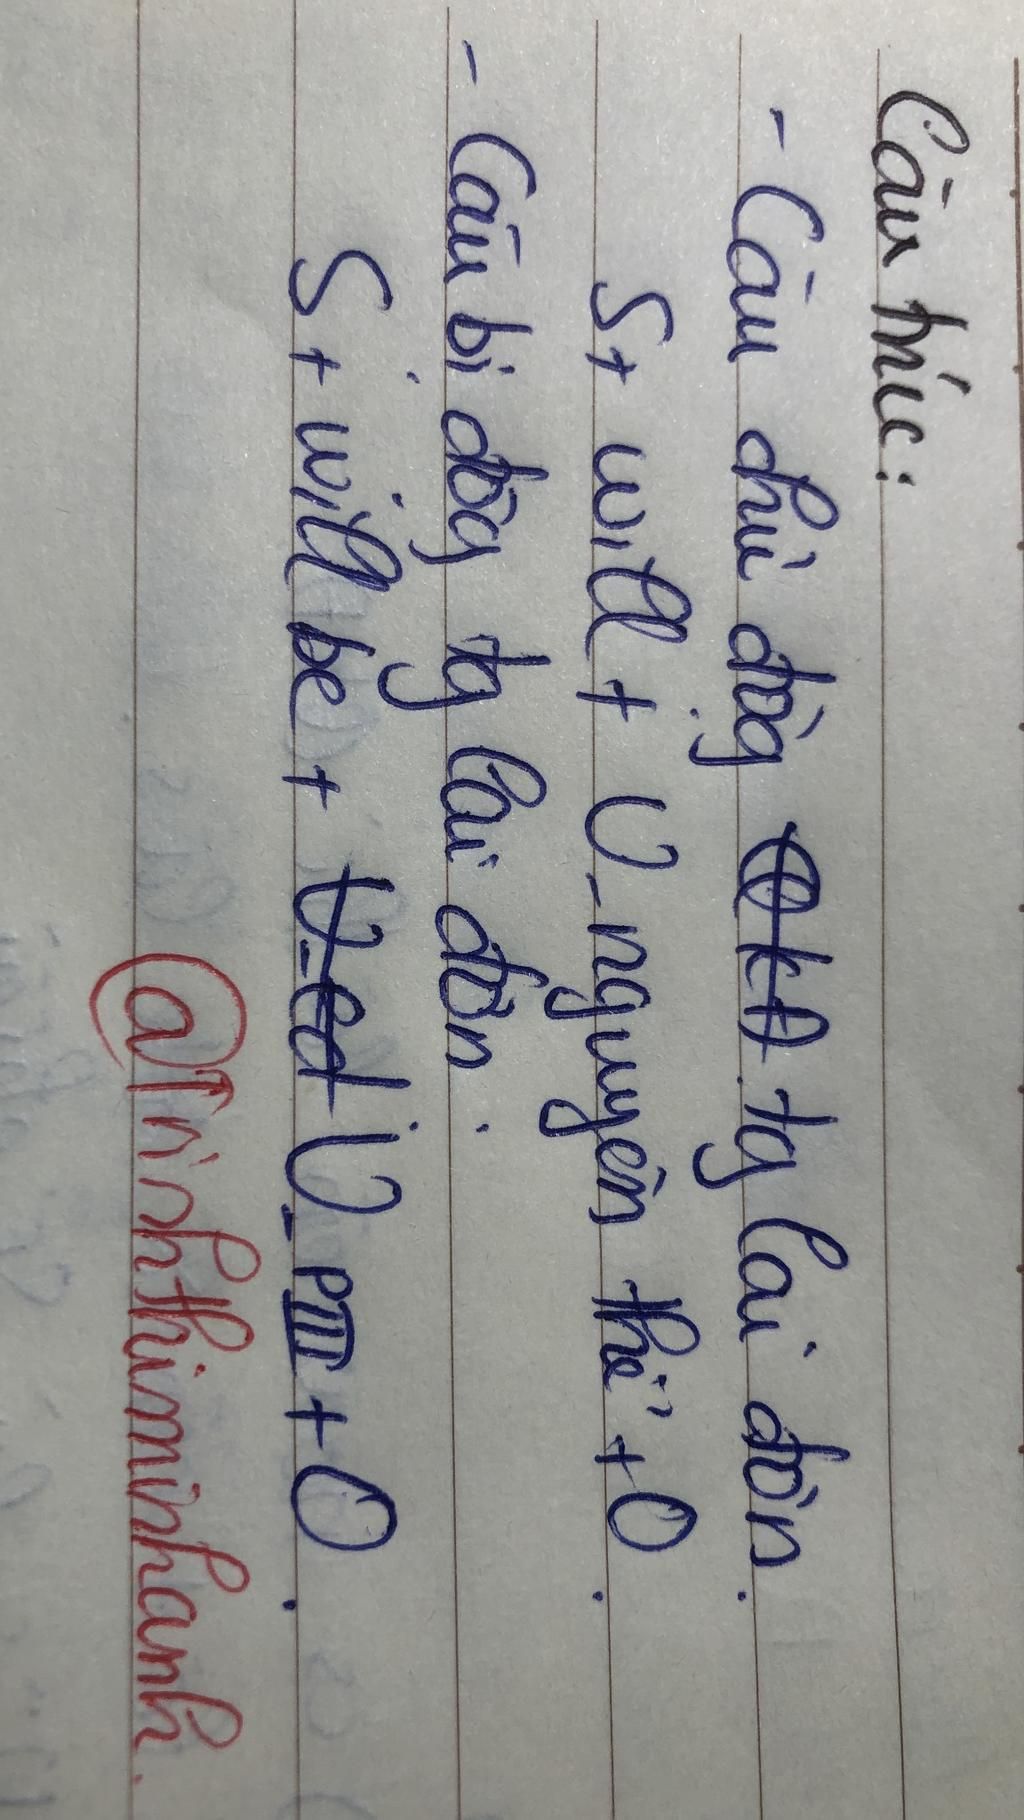 Câu thức:
- Câu chủ độg tg lai đơn.
S + will + V_nguyên thể + O.
- Câu bị độg tg lai đơn.
S + will be + V-ed V_PIII + O.
@Trinhthiminhanh.